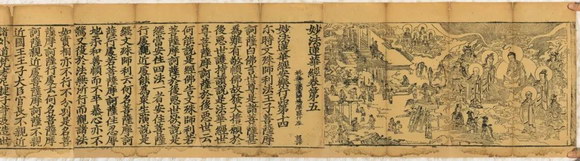 妙法蓮華經卷第五
妙法蓮華經安樂行品第十四
爾時文殊師利法王子菩薩摩
訶薩白佛言世尊是諸菩薩甚
為難有敬順佛故發大誓願於
後惡世護持讀說是法華經世
尊菩薩摩訶薩於後惡世云
何能說是經佛告文殊師利若
菩薩摩訶薩於後惡世欲說是
經當安住四法一者安住菩薩
行處親近處能為眾生演說是
經文殊師利云何名菩薩摩訶
薩行處若菩薩摩訶薩住忍辱
地柔和善順而不卒暴心亦不
驚又復於法無所行而觀諸法
如實相亦不行不分別是名菩
薩摩訶薩行處云何名菩薩摩
訶薩親近處菩薩摩訶薩不親
近國王王子大臣官長不親近
諸外道梵志尼揵子等及造世